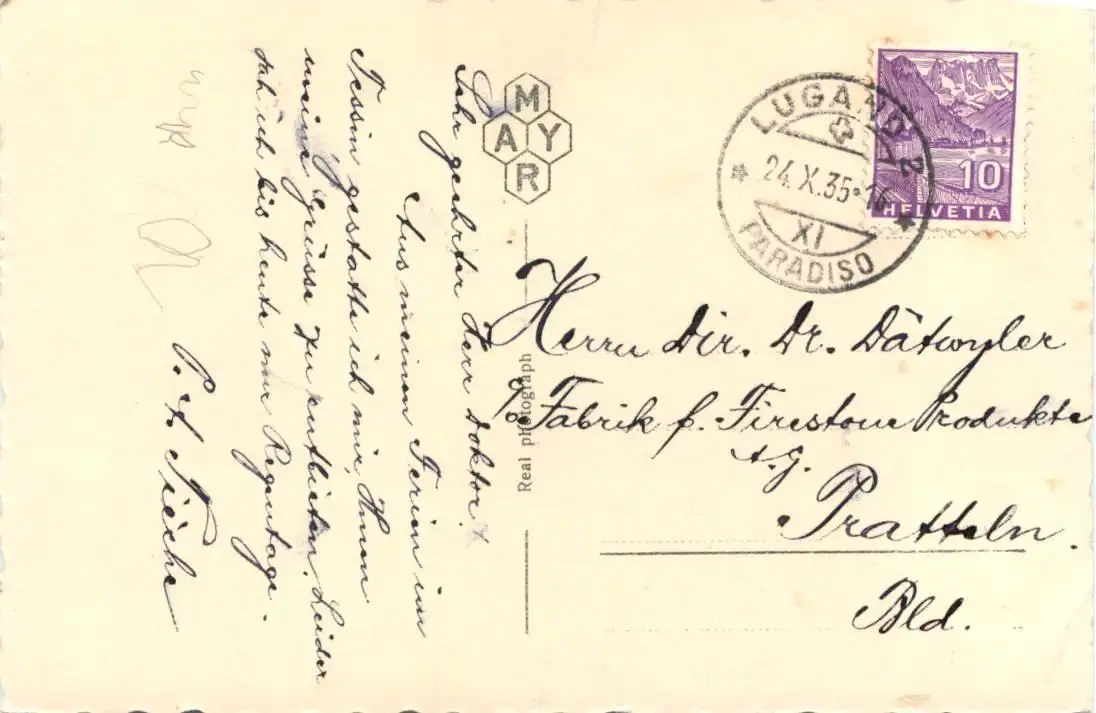 Sehr geehrter Herr Doktor!
Aus meinen Ferien im
Tessin gestatte ich mir, Ihnen
meine Grüsse zu entbieten. Leider
sah ich bis heute nur Regentage.
P. A. Tièche
MAYR
Real photograph
LUGANO 2
24.X.35·14
XI
PARADISO
10
HELVETIA
Herrn Dir. Dr. Dätwyler
c/o Fabrik f. Firestone Produkte
A.G.
Pratteln.
Bld.